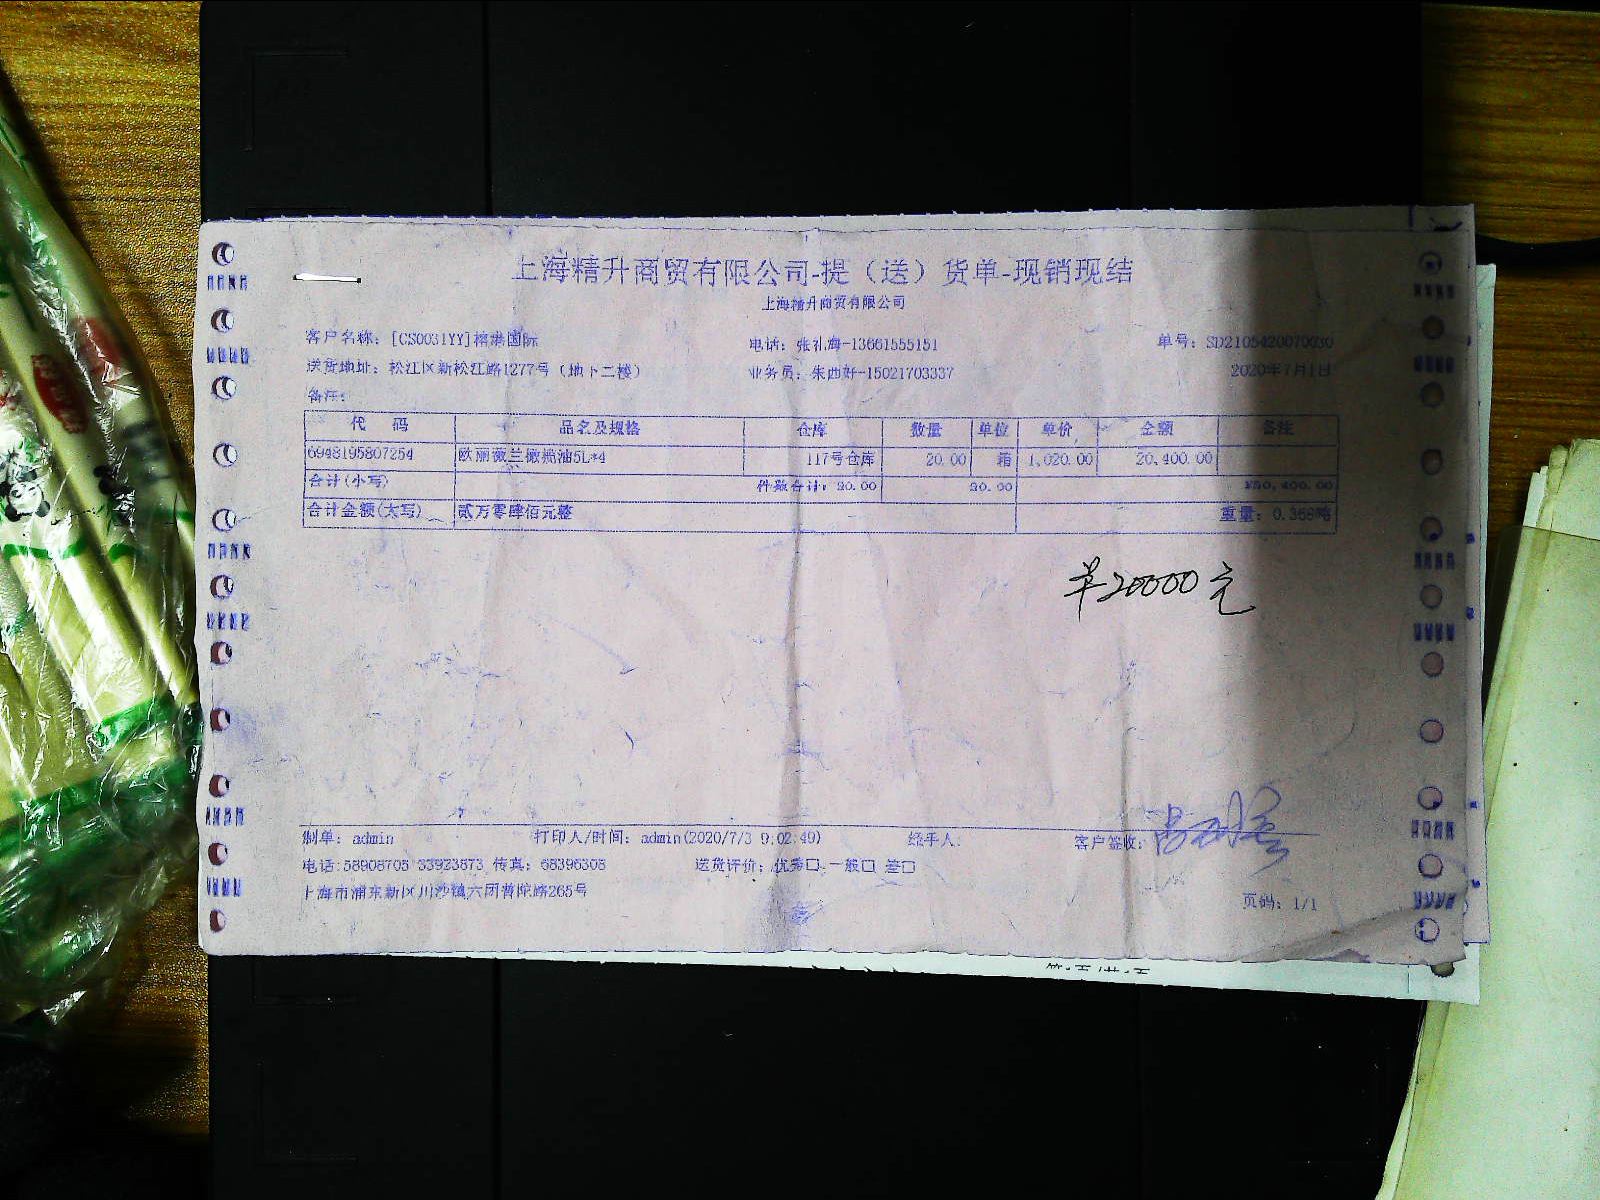 上海精升商贸有限公司-提（送）货单-现销现结
上海精升商贸有限公司
客户名称：[CS0031YY]榕琳国际 电话：张礼海-13661555151 单号：SD2105420070030
送货地址：松江区新松江路1277号（地下二楼） 业务员：朱西好-15021703337 2020年7月1日
备注：
代 码 品名及规格 仓库 数量 单位 单价 金额 备注
6948195807254 欧丽薇兰橄榄油5L*4 117号仓库 20.00 箱 1,020.00 20,400.00
合计(小写) 件数合计：20.00 20.00 ¥20,400.00
合计金额(大写) 贰万零肆佰元整 重量：0.368吨
¥20000元
制单：admin 打印人/时间：admin(2020/7/3 9:02:49) 经手人： 客户签收：
电话:58908705 33923873 传真：68396308 送货评价：优秀口 一般口 差口
上海市浦东新区川沙镇六团普陀路265号
页码：1/1